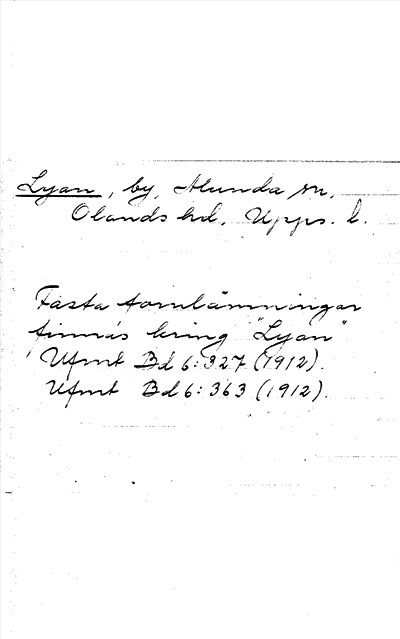 Lyan, by, Alunda sn,
Olands hd, Upps. l.
Fasta fornlämningar
finnas kring "Lyan"
Ufmt Bd 6: 327 (1912).
Ufmt Bd 6: 363 (1912).